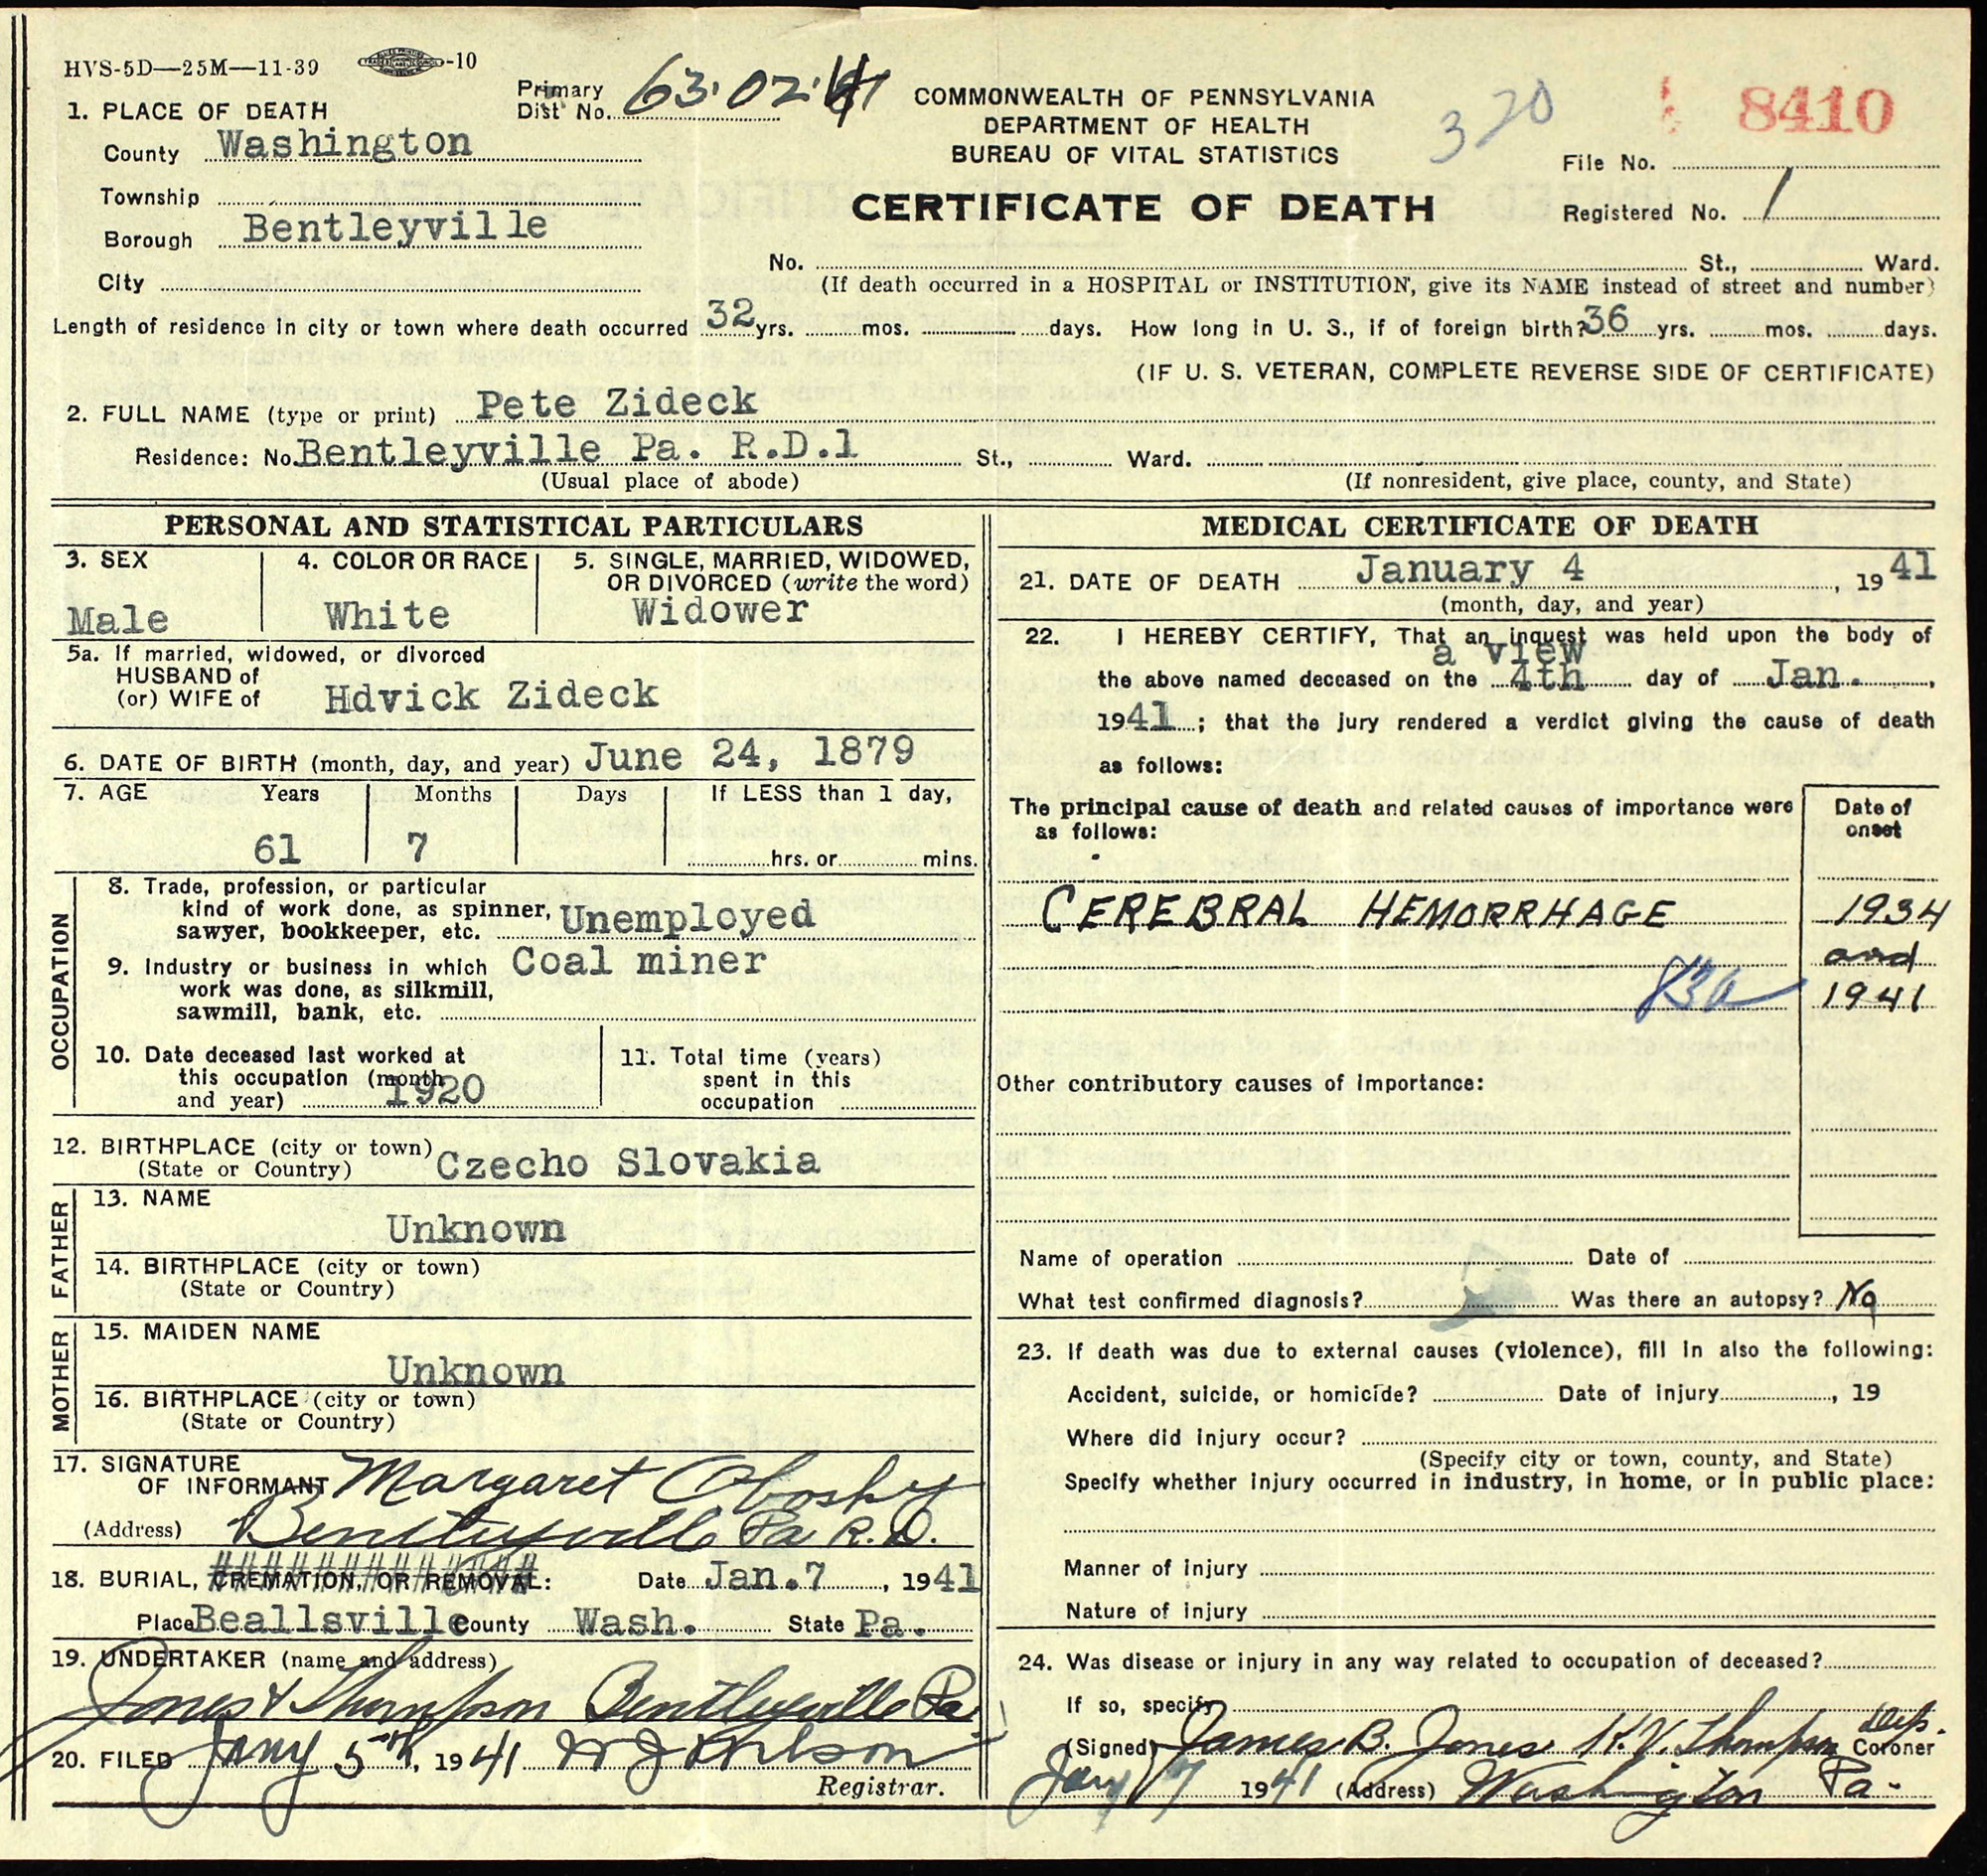 HVS-5D—25M—11-39 -10
Primary
Dist No. 63·02·
COMMONWEALTH OF PENNSYLVANIA
DEPARTMENT OF HEALTH
BUREAU OF VITAL STATISTICS
CERTIFICATE OF DEATH
320
8410
File No.
Registered No. 1
1. PLACE OF DEATH
County Washington
Township
Borough Bentleyville
City
No. St., Ward.
(If death occurred in a HOSPITAL or INSTITUTION, give its NAME instead of street and number)
Length of residence in city or town where death occurred 32 yrs. mos. days. How long in U. S., if of foreign birth? 36 yrs. mos. days.
(IF U. S. VETERAN, COMPLETE REVERSE SIDE OF CERTIFICATE)
2. FULL NAME (type or print) Pete Zideck
Residence: No. Bentleyville Pa. R.D.1 St., Ward.
(Usual place of abode) (If nonresident, give place, county, and State)
PERSONAL AND STATISTICAL PARTICULARS
3. SEX 4. COLOR OR RACE 5. SINGLE, MARRIED, WIDOWED,
OR DIVORCED (write the word)
Male White Widower
5a. If married, widowed, or divorced
HUSBAND of
(or) WIFE of Hdvick Zideck
6. DATE OF BIRTH (month, day, and year) June 24, 1879
7. AGE Years Months Days If LESS than 1 day,
61 7 hrs. or mins.
OCCUPATION
8. Trade, profession, or particular
kind of work done, as spinner,
sawyer, bookkeeper, etc. Unemployed
9. Industry or business in which Coal miner
work was done, as silkmill,
sawmill, bank, etc.
10. Date deceased last worked at
this occupation (month
and year) 1920
11. Total time (years)
spent in this
occupation
12. BIRTHPLACE (city or town)
(State or Country) Czecho Slovakia
FATHER
13. NAME
Unknown
14. BIRTHPLACE (city or town)
(State or Country)
MOTHER
15. MAIDEN NAME
Unknown
16. BIRTHPLACE (city or town)
(State or Country)
17. SIGNATURE
OF INFORMANT Margaret
(Address) Bentleyville Pa R. D.
18. BURIAL, CREMATION, OR REMOVAL: Date Jan. 7, 1941
Place Beallsville County Wash. State Pa.
19. UNDERTAKER (name and address)
Jones & Thompson Bentleyville Pa
20. FILED Jany 5th, 1941
Registrar.
MEDICAL CERTIFICATE OF DEATH
21. DATE OF DEATH January 4, 1941
(month, day, and year)
22. I HEREBY CERTIFY, That an inquest was held upon the body of
a view
the above named deceased on the 4th day of Jan.,
1941; that the jury rendered a verdict giving the cause of death
as follows:
The principal cause of death and related causes of importance were
as follows:
Date of
onset
CEREBRAL HEMORRHAGE 1934
and
83a 1941
Other contributory causes of importance:
Name of operation Date of
What test confirmed diagnosis? Was there an autopsy? No
23. If death was due to external causes (violence), fill in also the following:
Accident, suicide, or homicide? Date of injury, 19
Where did injury occur?
(Specify city or town, county, and State)
Specify whether injury occurred in industry, in home, or in public place:
Manner of injury
Nature of injury
24. Was disease or injury in any way related to occupation of deceased?
If so, specify
(Signed) James B. Jones H. V. Thompson Dep. Coroner
Jany 7 1941 (Address) Washington Pa.